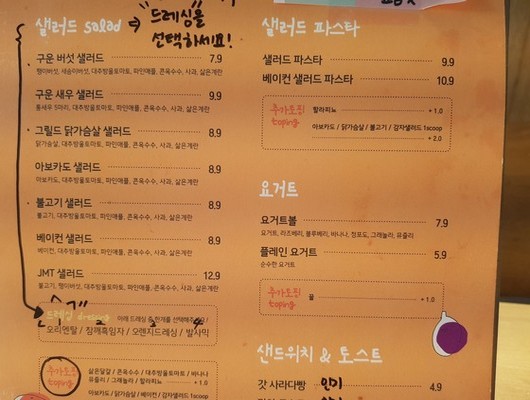 샐러드 salad
"드레싱을
선택하세요!
구운 버섯 샐러드 7.9
팽이버섯, 새송이버섯, 대추방울토마토, 파인애플, 콘옥수수, 사과, 삶은계란
구운 새우 샐러드 9.9
통새우 5마리, 대추방울토마토, 파인애플, 콘옥수수, 사과, 삶은계란
그릴드 닭가슴살 샐러드 8.9
닭가슴살, 대추방울토마토, 파인애플, 콘옥수수, 사과, 삶은계란
아보카도 샐러드 8.9
아보카도, 대추방울토마토, 파인애플, 콘옥수수, 사과, 삶은계란
불고기 샐러드 8.9
불고기, 대추방울토마토, 파인애플, 콘옥수수, 사과, 삶은계란
베이컨 샐러드 8.9
베이컨, 대추방울토마토, 파인애플, 콘옥수수, 사과, 삶은계란
JMT 샐러드 12.9
불고기, 팽이버섯, 대추방울토마토, 파인애플, 콘옥수수, 사과, 삶은계란
드레싱 dressing 아래 드레싱 중 한개를 선택해주세요
오리엔탈 / 참깨흑임자 / 오렌지드레싱 / 발사믹
추가토핑
toping
삶은달걀 / 콘옥수수 / 대추방울토마토 / 바나나
유즐리 / 그래놀라 / 할라피뇨 + 1.0
아보카도 / 닭가슴살 / 불고기 / 베이컨 / 감자샐러드 1scoop
샐러드 파스타
샐러드 파스타 9.9
베이컨 샐러드 파스타 10.9
추가토핑
toping
할라피뇨 + 1.0
아보카도 / 닭가슴살 / 불고기 / 감자샐러드 1scoop
+ 2.0
요거트
요거트볼 7.9
요거트, 라즈베리, 블루베리, 바나나, 청포도, 그래놀라, 유즐리
플레인 요거트 5.9
순수한 요거트
추가토핑
toping
꿀 + 1.0
샌드위치 & 토스트
갓 사라다빵 인기 4.9